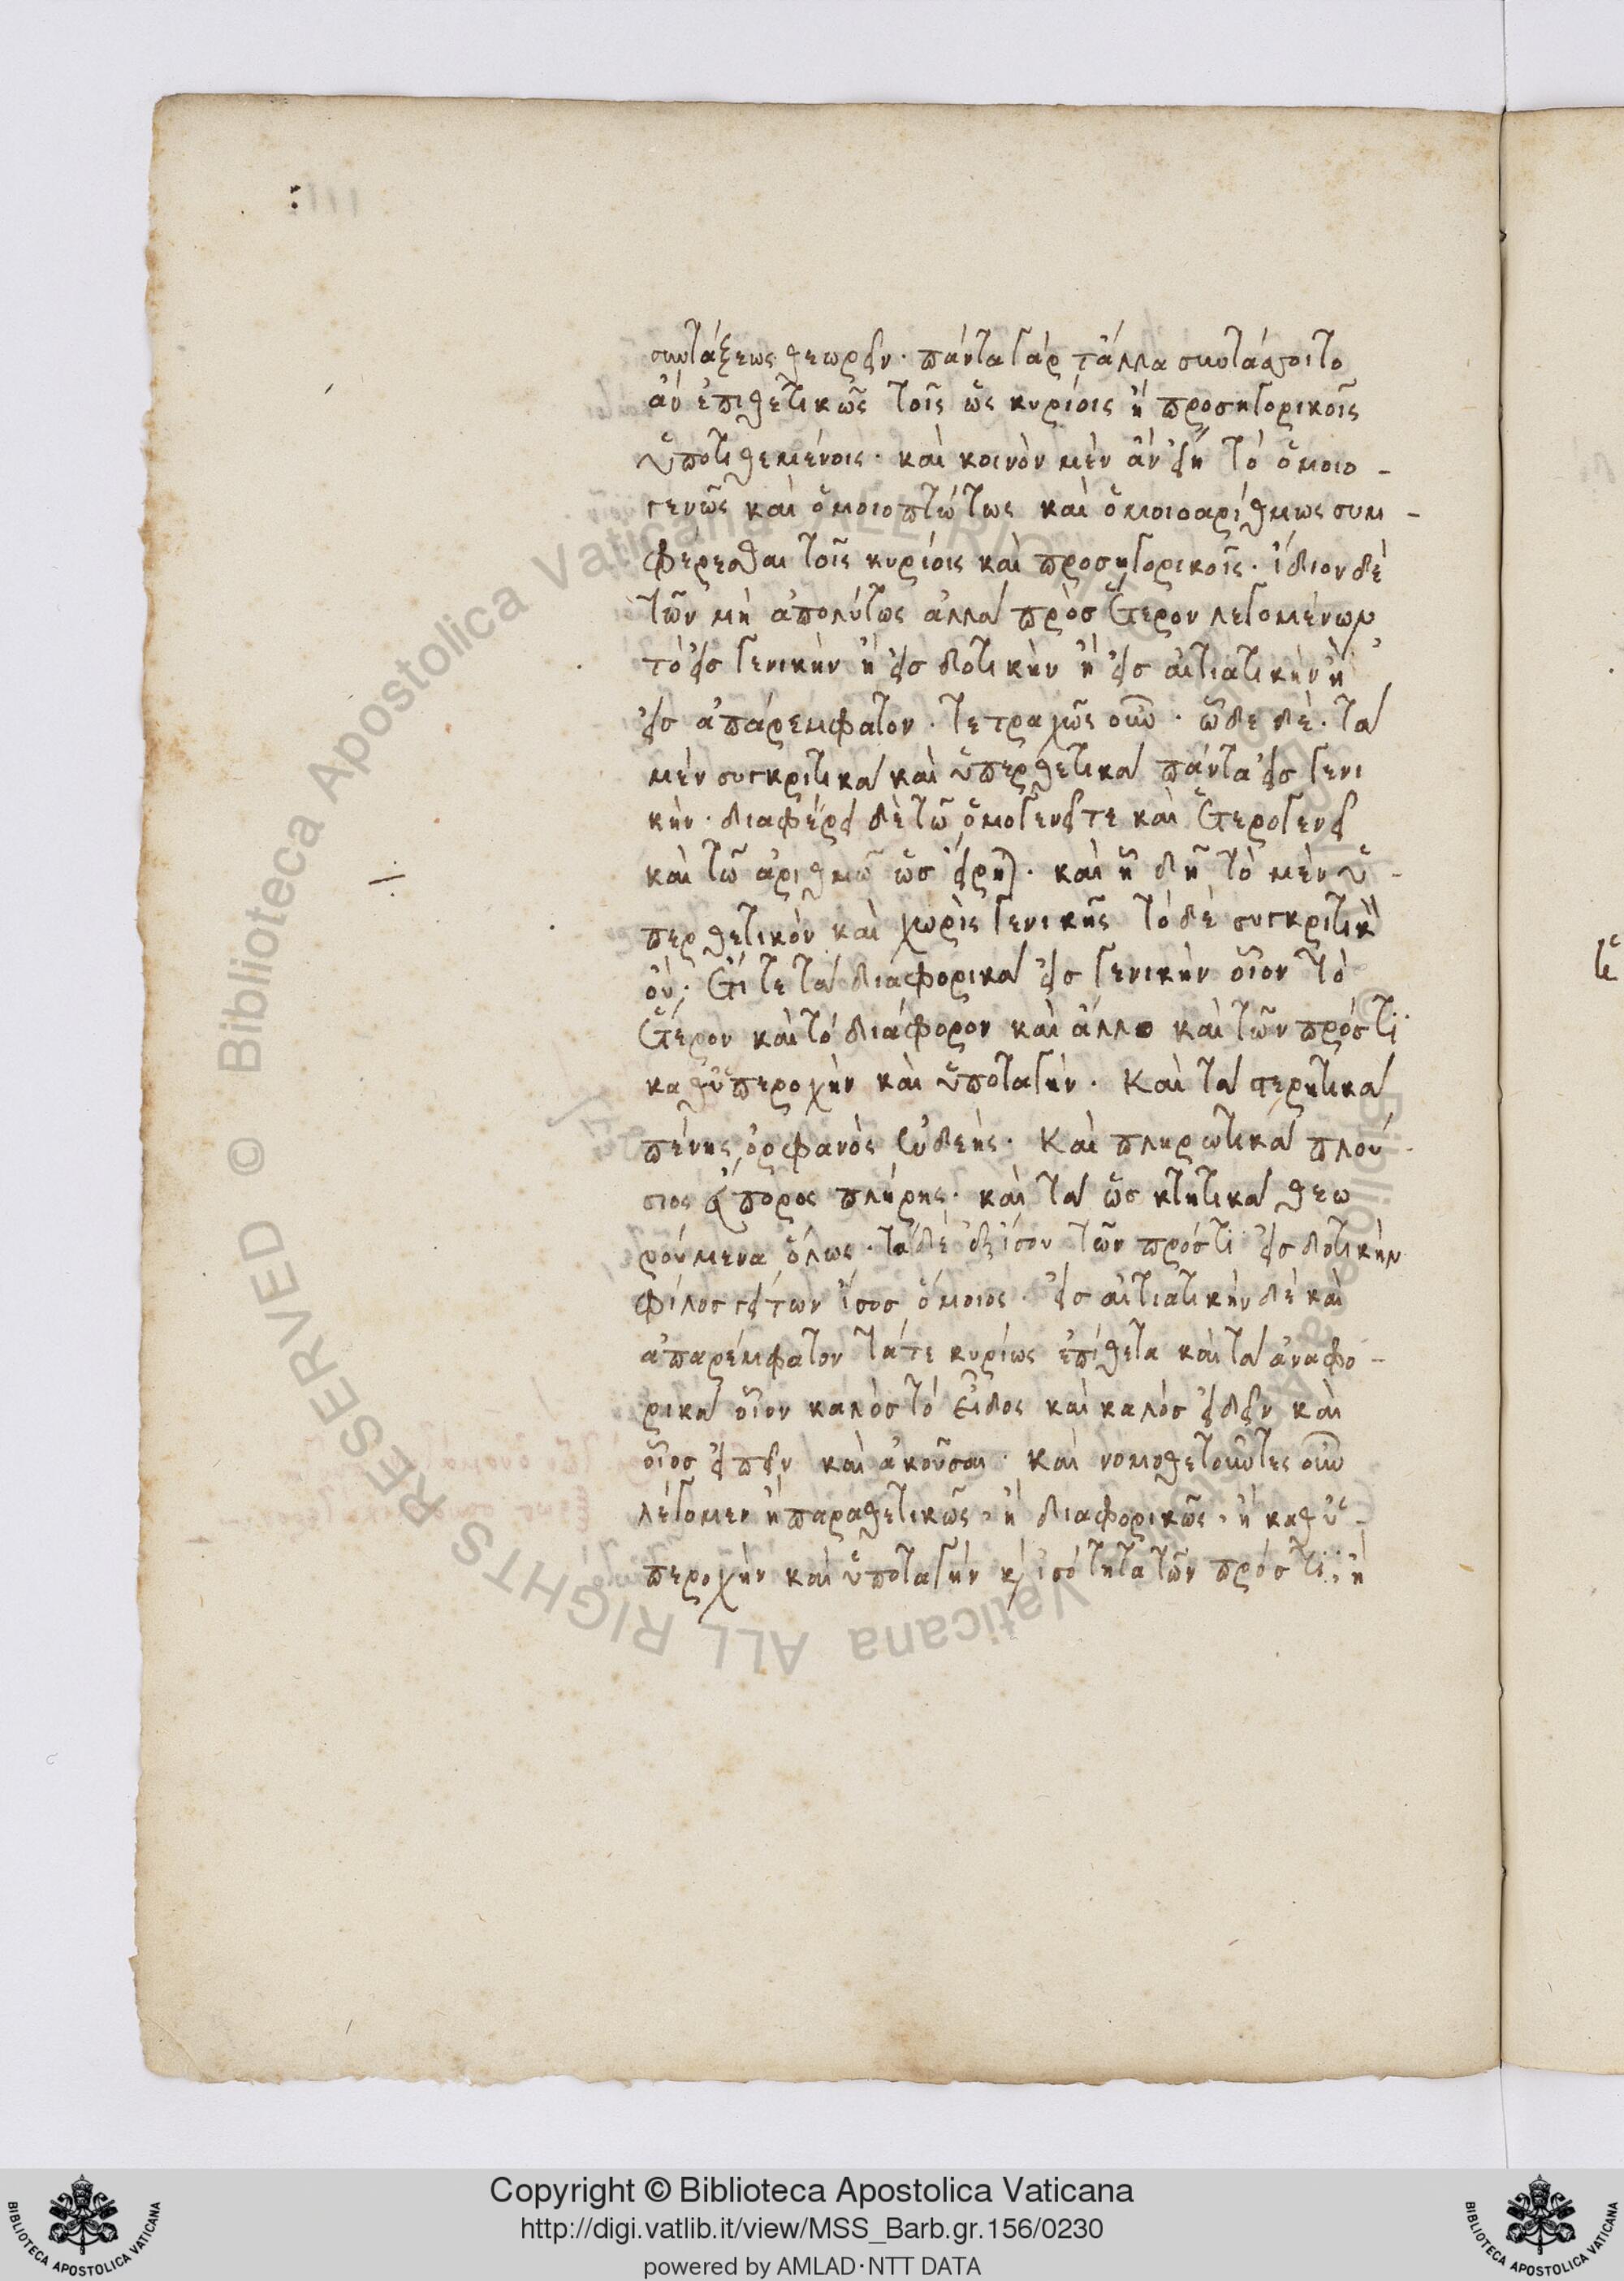 συντάξεως θεωρεῖν· πάντα γὰρ τἄλλα συντάσσοιτο
ἂν ἐπιθετικῶς τοῖς ὡς κυρίοις ἢ προσηγορικοῖς
ὑποτιθεμένοις· καὶ κοινὸν μὲν ἂν εἴη τὸ ὁμοιο-
γενῶς καὶ ὁμοιοπτώτως καὶ ὁμοιοαρίθμως συμ-
φέρεσθαι τοῖς κυρίοις καὶ προσηγορικοῖς· ἴδιον δὲ
τῶν μὴ ἀπολύτως ἀλλὰ πρὸσ ἕτερον λεγομένων
τὸ εἰσ γενικὴν ἢ εἰσ δοτικὴν ἢ εἰσ αἰτιατικὴν ἢ
εἰσ ἀπαρέμφατον· τετραχῶς οὖν· ὧδε δέ· τὰ
μὲν συγκριτικὰ καὶ ὑπερθετικὰ πάντα εἰσ γενι
κήν· διαφέρει δὲ τῶ ὁμογενεῖ τε καὶ ἑτερογενεῖ
καὶ τῶ ἀριθμῶ ὡσ εἴρηται· καὶ ἧ δῆ τὸ μὲν ὑ-
περθετικὸν καὶ χωρὶς γενικῆς τὸ δὲ συγκριτικὸν
οὔ· ἔτι τε τὰ διαφορικὰ εἰσ γενικὴν οἷον τὸ
ἕτερον καὶ τὸ διάφορον καὶ ἄλλο καὶ τῶν πρόσ τι
καθ' ὑπεροχὴν καὶ ὑποταγήν. Καὶ τὰ στερητικὰ
πένης ὀρφανὸς ἐνδεής. Καὶ πληρωτικὰ πλού-
σιος εὔπορος πλήρης· καὶ τὰ ὡσ κτητικὰ θεω
ρούμενα ὅλως· τὰ δὲ ἐξίσου τῶν πρόσ τι εἰσ δοτικὴν
φίλοσ γείτων ἴσοσ ὅμοιος· εἰσ αἰτιατικὴν δὲ καὶ
ἀπαρέμφατον τά τε κυρίως ἐπίθετα καὶ τὰ ἀναφο-
ρικὰ οἷον καλὸσ τὸ εἶδος καὶ καλὸσ ἰδεῖν καὶ
οἷοσ εἰπεῖν καὶ ἀκοῦσαι· καὶ νομοθετοῦντες οὖν
λέγομεν ἢ παραθετικῶς, ἢ διαφορικῶς, ἢ καθ' ὑ-
περοχὴν καὶ ὑποταγὴν κ ἰσότητα τῶν πρόσ τι, ἢ